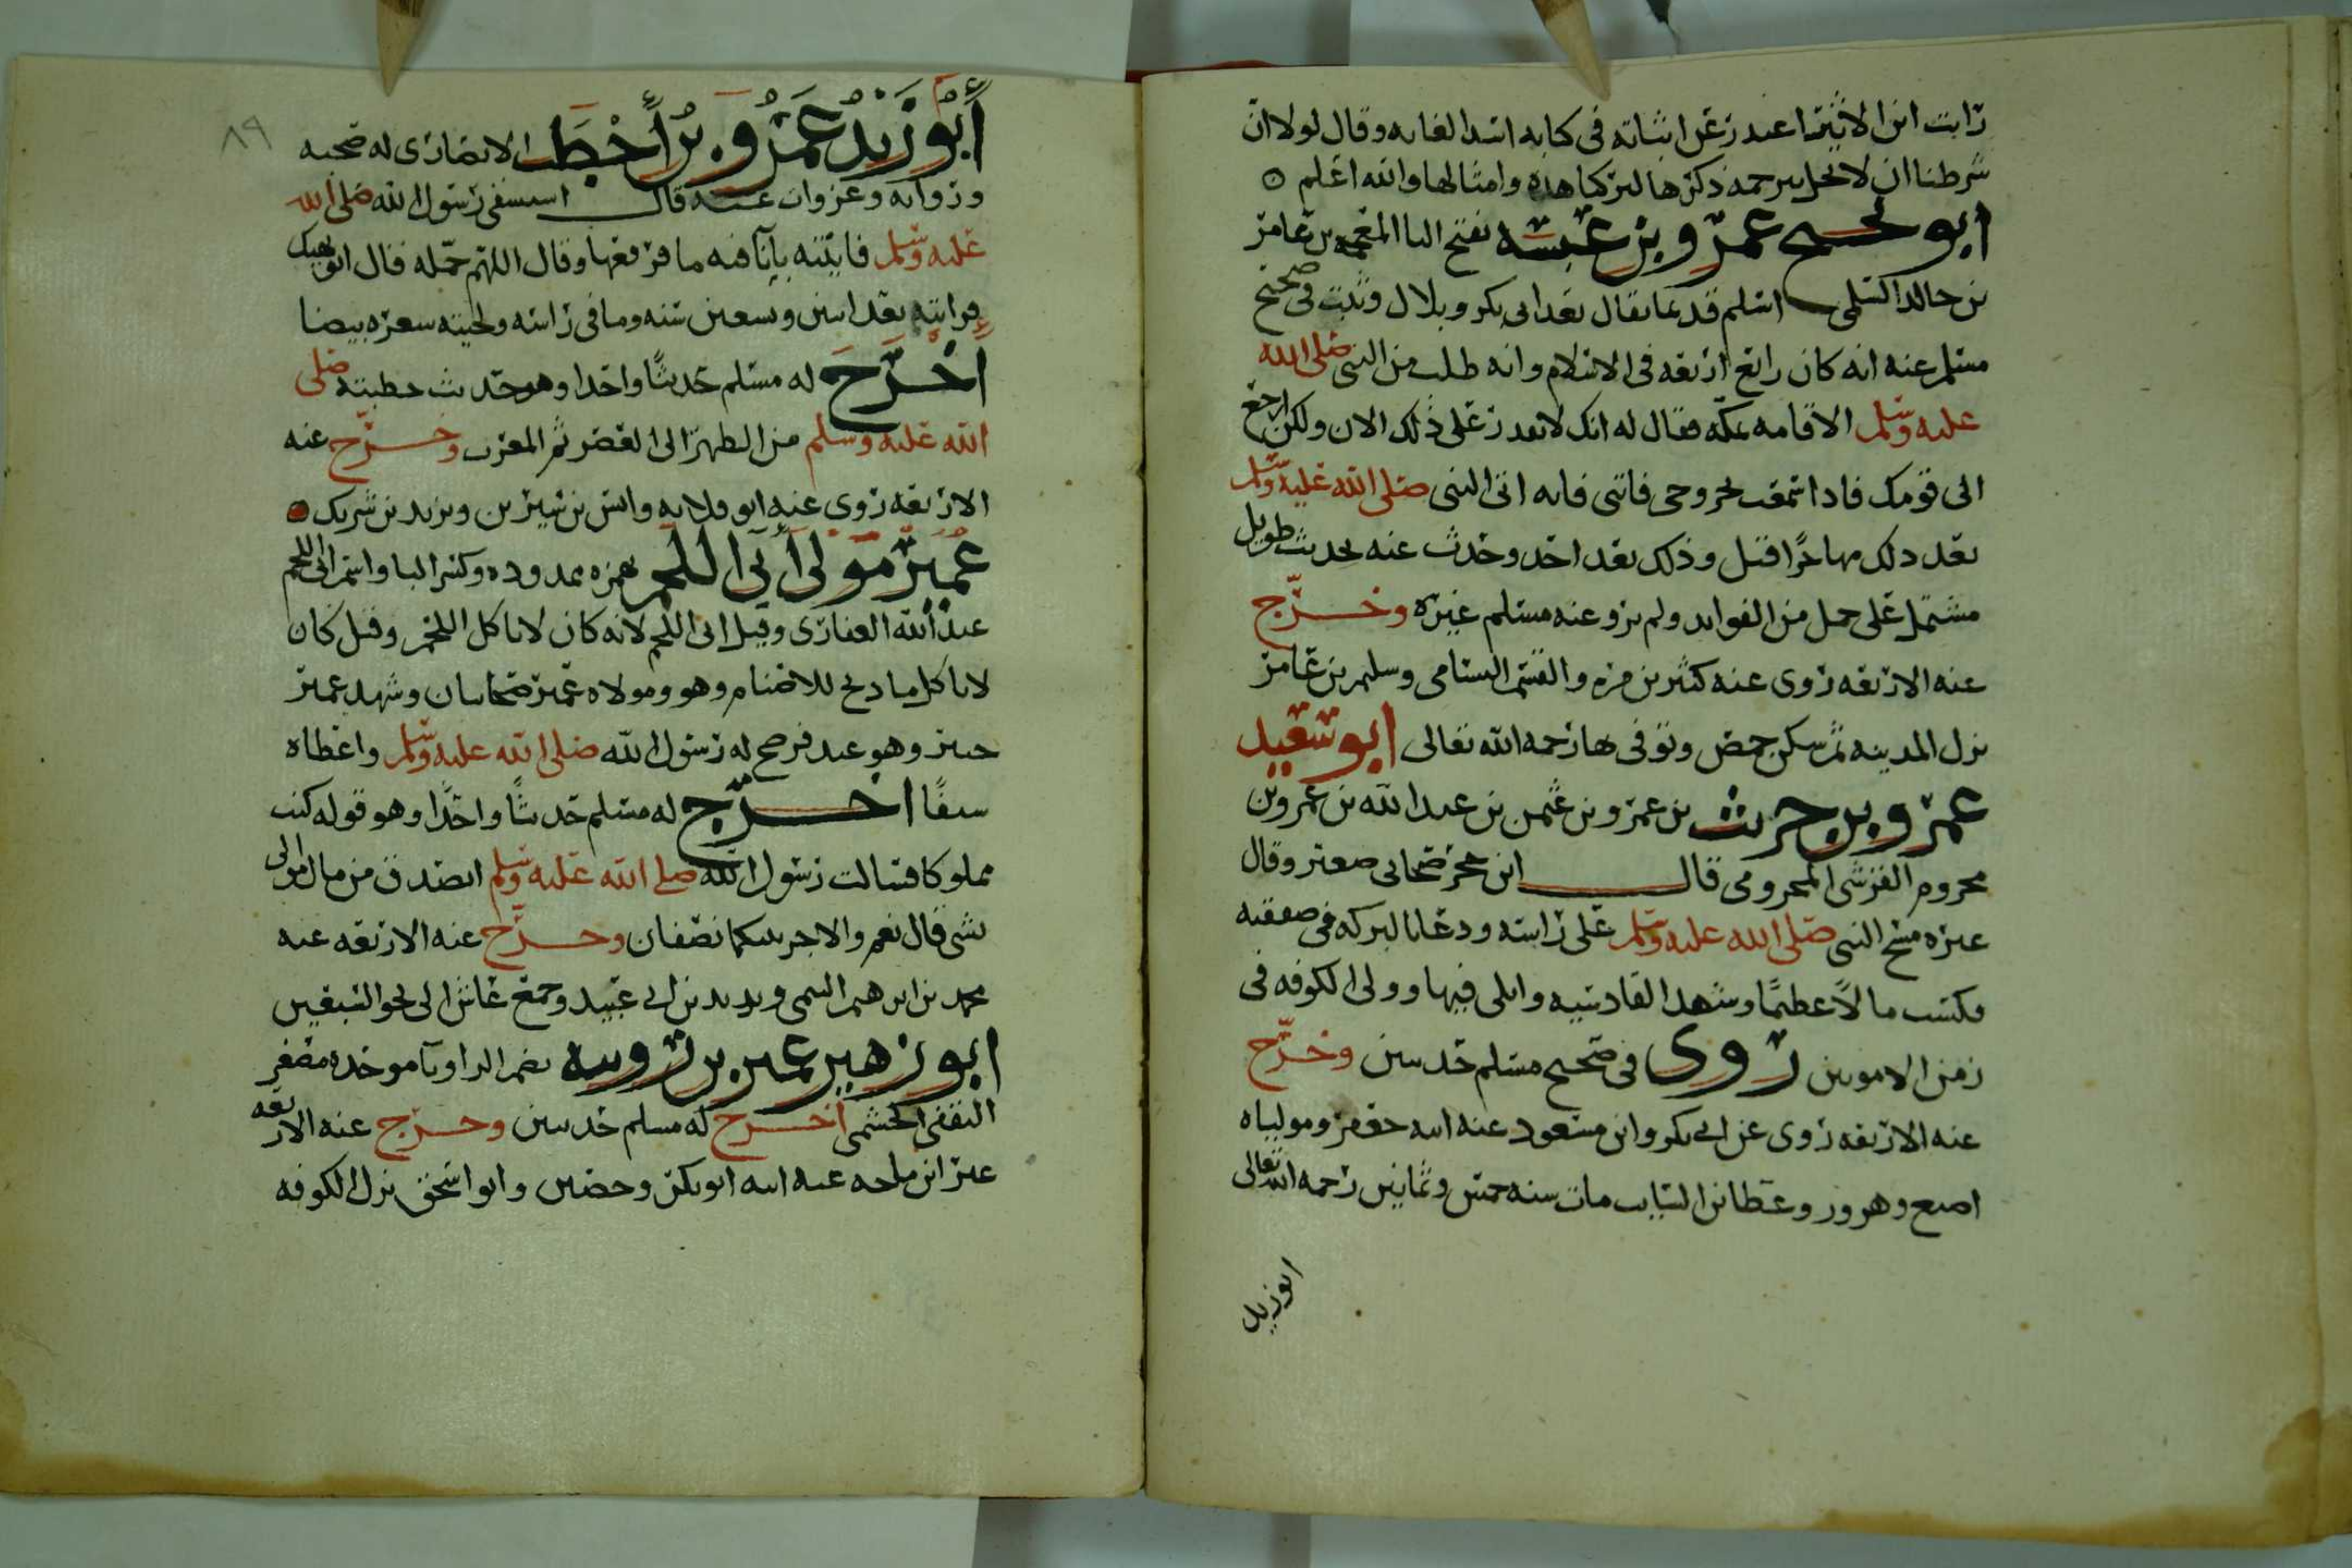 رايت ابن الاثير اعتذر عن اثباته في كتابه اسد الغابه وقال لولا ان
شرطنا ان لا نخل بترجمه ذكرها لتركنا هذه وامثالها والله اعلم
ابو نجيح عمرو بن عبسه بفتح البا المعجمه بن عامر
بن خالد السلمي اسلم قديما يقال بعد ابي بكر وبلال وثبت في صحيح
مسلم عنه انه كان رابع اربعه في الاسلام وانه طلب من النبي صلى الله
عليه وسلم الاقامه بمكه فقال له انك لا تقدر على ذلك الان ولكن ارجع
الى قومك فاذا سمعت بخروجي فاتني فانه اتى النبي صلى الله عليه وسلم
بعد ذلك مهاجرًا قبل وذلك بعد احد وحدث عنه بحديث طويل
مشتمل على جمل من الفوايد ولم يرو عنه مسلم غيره وخرج
عنه الاربعه روى عنه كثير بن مره والقسم الشامي وسليم بن عامر
نزل المدينه ثم سكن حمص وتوفي بها رحمه الله تعالى ابو سعيد
عمرو بن حريث بن عمرو بن عثمن بن عبد الله بن عمرو بن
مخزوم القرشي المخزومي قال ابن حجر صحابي صغير وقال
غيره مسح النبي صلى الله عليه وسلم على راسه ودعا بالبركه في صفقته
فكسب مالًا عظيمًا وشهد القادسيه وابلى فيها وولي الكوفه في
زمن الامويين روى في صحيح مسلم حديثين وخرج
عنه الاربعه روى عن ابي بكر وابن مسعود عنه ابنه جعفر ومولياه
اصبغ وهرون وعطا بن السايب مات سنه خمس وثمانين رحمه الله تعالى
ابو زيد
٨٩
أبو زيد عمرو بن أخطب الانصاري له صحبه
وروايه وغزوات عنه قال استسقى رسول الله صلى الله
عليه وسلم فاتيته بإنآ فيه ما فرفعها وقال اللهم جمله قال ابو نهيك
فرايته بعد اثنين وتسعين سنه وما في راسه ولحيته شعره بيضا
أخرج له مسلم حديثًا واحدا وهو حديث خطبته صلى
الله عليه وسلم من الظهر الى العصر ثم المغرب وخرج عنه
الاربعه روى عنه ابو قلابه وانس بن سيرين ويزيد بن شريك
عمير مولى آبي اللحم بهمزه ممدوده وكسر البا واسم ابي اللحم
عبد الله الغفاري وقيل ابي اللحم لانه كان لا ياكل اللحم وقيل كان
لا ياكل ما ذبح للاصنام وهو ومولاه عمير صحابيان وشهد عمير
حنين وهو عبد فرضح له رسول الله صلى الله عليه وسلم واعطاه
سيفًا اخرج له مسلم حديثًا واحدًا وهو قوله كنت
مملوكا فسالت رسول الله صلى الله عليه وسلم اتصدق من مال موالي
بشي قال نعم والاجر بينكما نصفان وخرج عنه الاربعه عنه
محمد بن ابرهيم التيمي ويزيد بن ابي عبيد وجمع عاش الى نحو السبعين
ابو زهير عمير بن رويبه بضم الرا وبآ موحده مصغر
الثقفي الجشمي أخرج له مسلم حديثين وخرج عنه الاربعه
عنه ابنه ابو بكر وحصين وابو اسحق نزل الكوفه